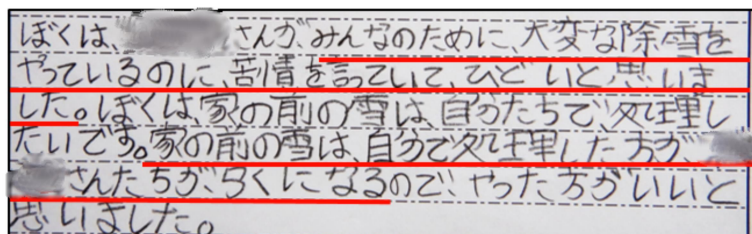 ぼくは、さんが、みんなのために、大変な除雪を
やっているのに、苦情を言っていて、ひどいと思いま
した。ぼくは、家の前の雪は、自分たちで、処理し
たいです。家の前の雪は、自分で処理した方が、
さんたちが、らくになるので、やった方がいいと
思いました。